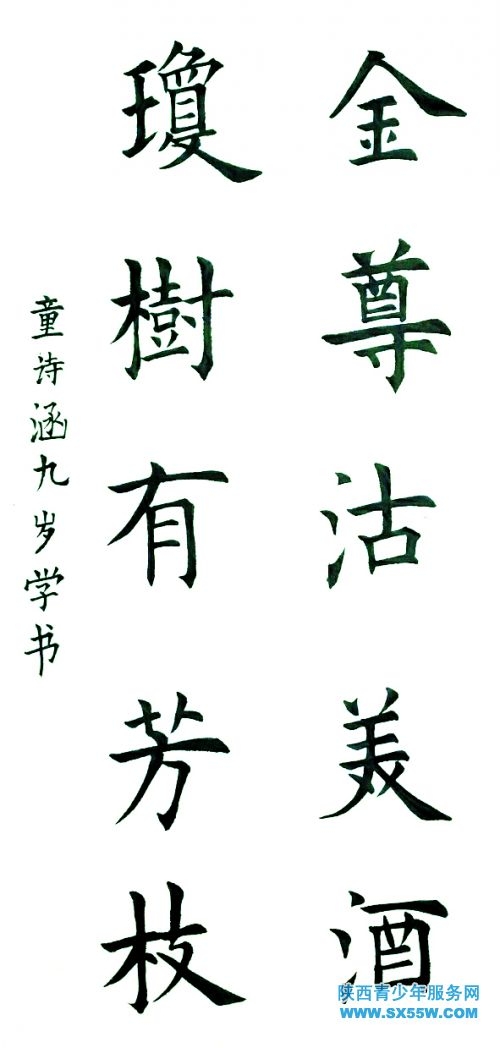 金尊沽美酒
瓊樹有芳枝
童诗涵九岁学书
陕西青少年服务网
www.sx55w.com